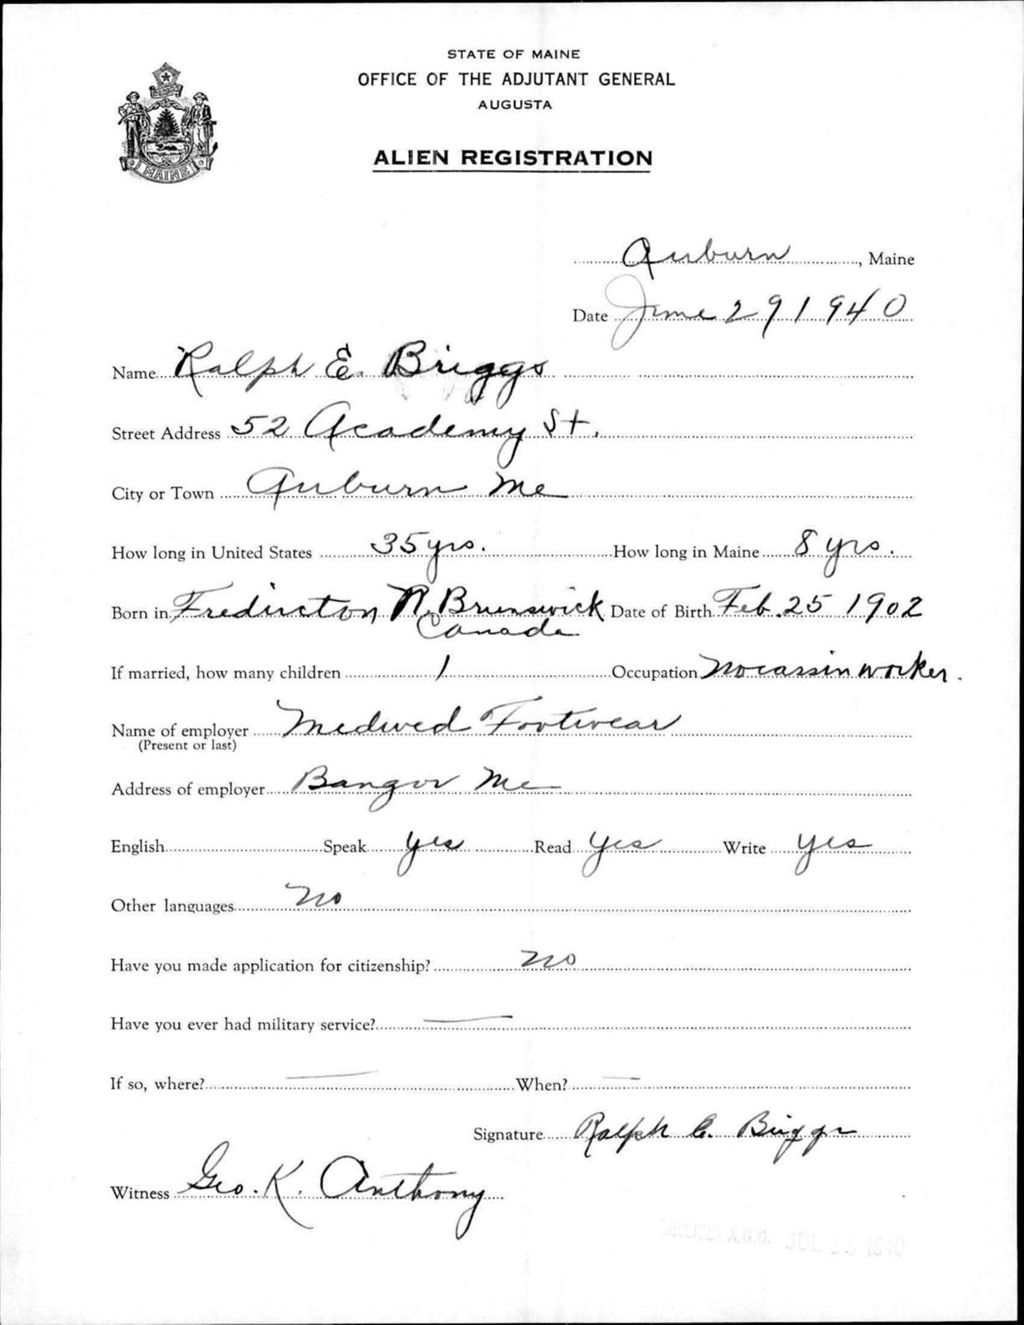 STATE OF MAINE
OFFICE OF THE ADJUTANT GENERAL
AUGUSTA
MAINE
ALIEN REGISTRATION
Auburn, Maine
Date June 29 1940
Name Ralph E. Briggs
Street Address 52 Academy St.
City or Town Auburn Me
How long in United States 35 yrs. How long in Maine 8 yrs.
Born in Fredircton N. Brunswick Date of Birth Feb. 25 1902
Canada
If married, how many children 1 Occupation Mocassin worker.
Name of employer Medwed Footwear
(Present or last)
Address of employer Bangor Me
English Speak yes Read Yes Write Yes
Other languages No
Have you made application for citizenship? No
Have you ever had military service? —
If so, where? — When? —
Signature Ralph E. Briggs
Witness Geo. K. Anthony